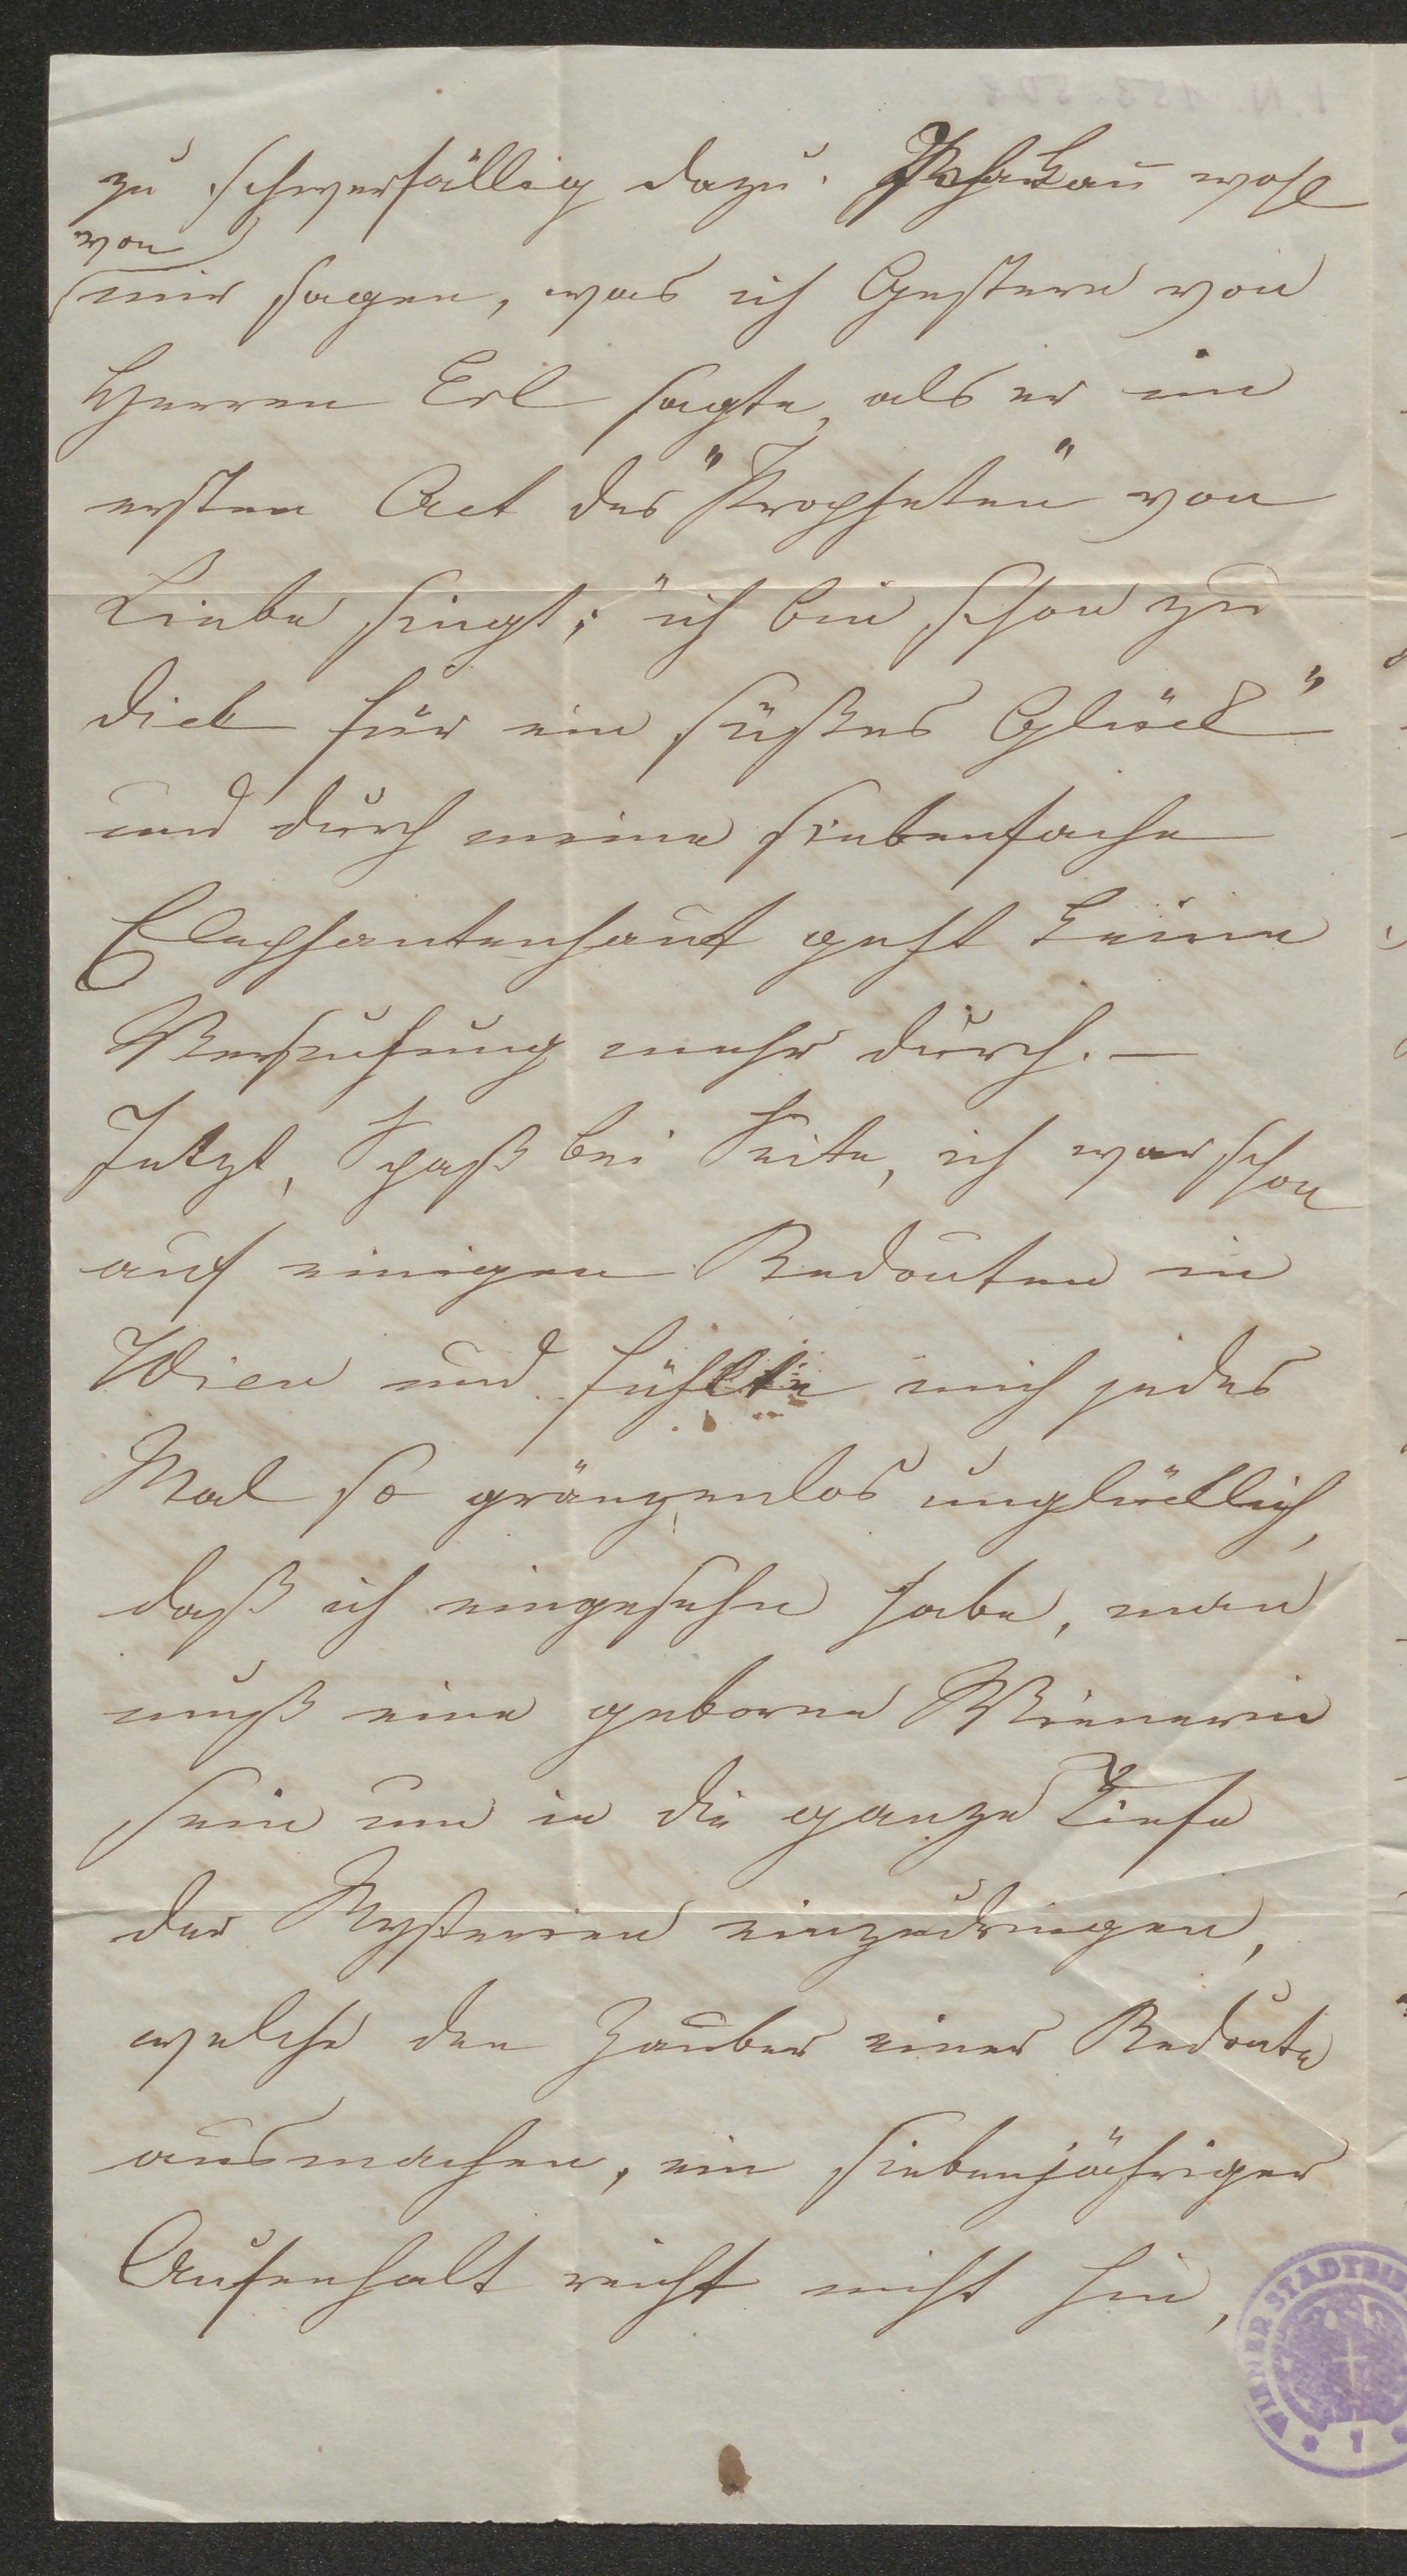 zu schwerfällig dazu. Ich kann wohl
von
mir sagen, was ich Gestern von
Herren Erl sagte, als er im
ersten Act des "Propheten" von
Liebe singt; "ich bin schon zu
dick für ein süßes Glück"
und durch meine siebenfache
Elephantenhaut geht keine
Versuchung mehr durch. —
Jetzt, Spaß bei Seite, ich war schon
auf einigen Redouten in
Wien und fühlte mich jedes
Mal so gränzenlos unglücklich,
daß ich eingesehn habe, man
muß eine geborne Wienerin
sein um in die ganze Tiefe
der Mysterien einzudringen,
welche den Zauber einer Redoute
ausmachen, ein siebenjähriger
Aufenhalt reicht nicht hin,
WIENER STADTBI